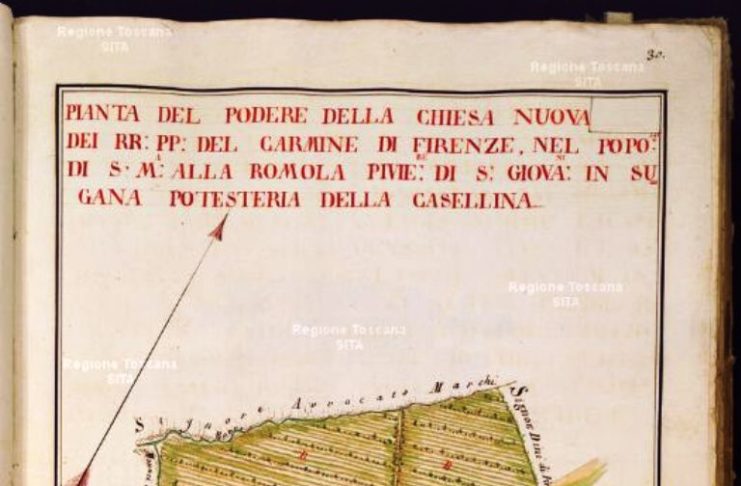 Regione Toscana
SITA
30.
Regione Toscana
SITA
PIANTA DEL PODERE DELLA CHIESA NUOVA
DEI RR: PP: DEL CARMINE DI FIRENZE, NEL POPO:
DI S· M: ALLA ROMOLA PIVIE: DI S: GIOVA: IN SU
GANA POTESTERIA DELLA CASELLINA
Regione Toscana
SITA
Regione Toscana
SITA
Regione Toscana
SITA
Signore Avvocato Marchi
Signor Dini di
B
B